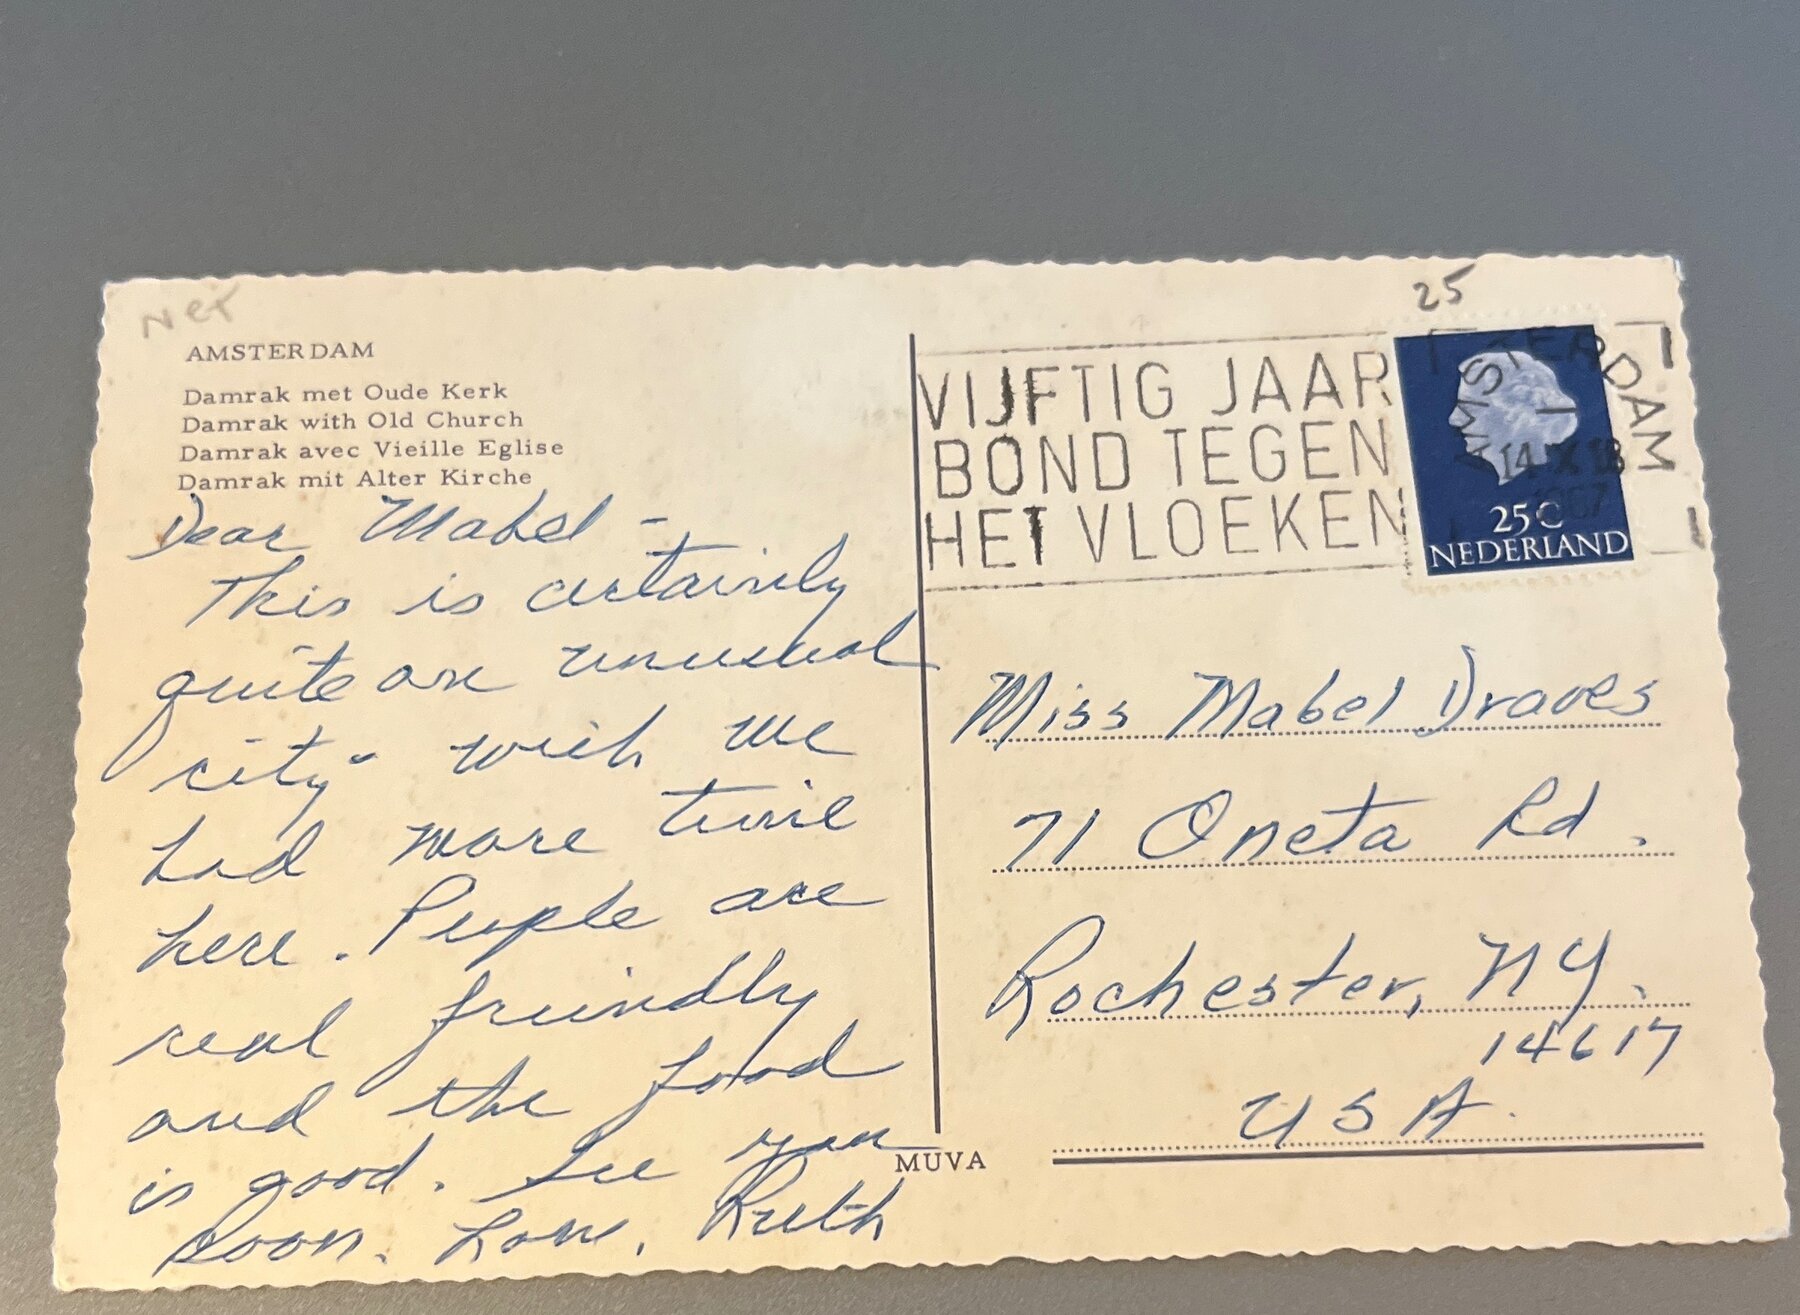 Net
AMSTERDAM
Damrak met Oude Kerk
Damrak with Old Church
Damrak avec Vieille Eglise
Damrak mit Alter Kirche
Dear Mabel -
This is certainly
quite an unusual
city - wish we
had more time
here. People are
real friendly
and the food
is good. See you
soon. Love, Ruth
MUVA
25
VIJFTIG JAAR
BOND TEGEN
HET VLOEKEN
AMSTERDAM
14 IX 18
1967
25c
NEDERLAND
Miss Mabel Draves
71 Oneta Rd.
Rochester, NY.
14617
USA.